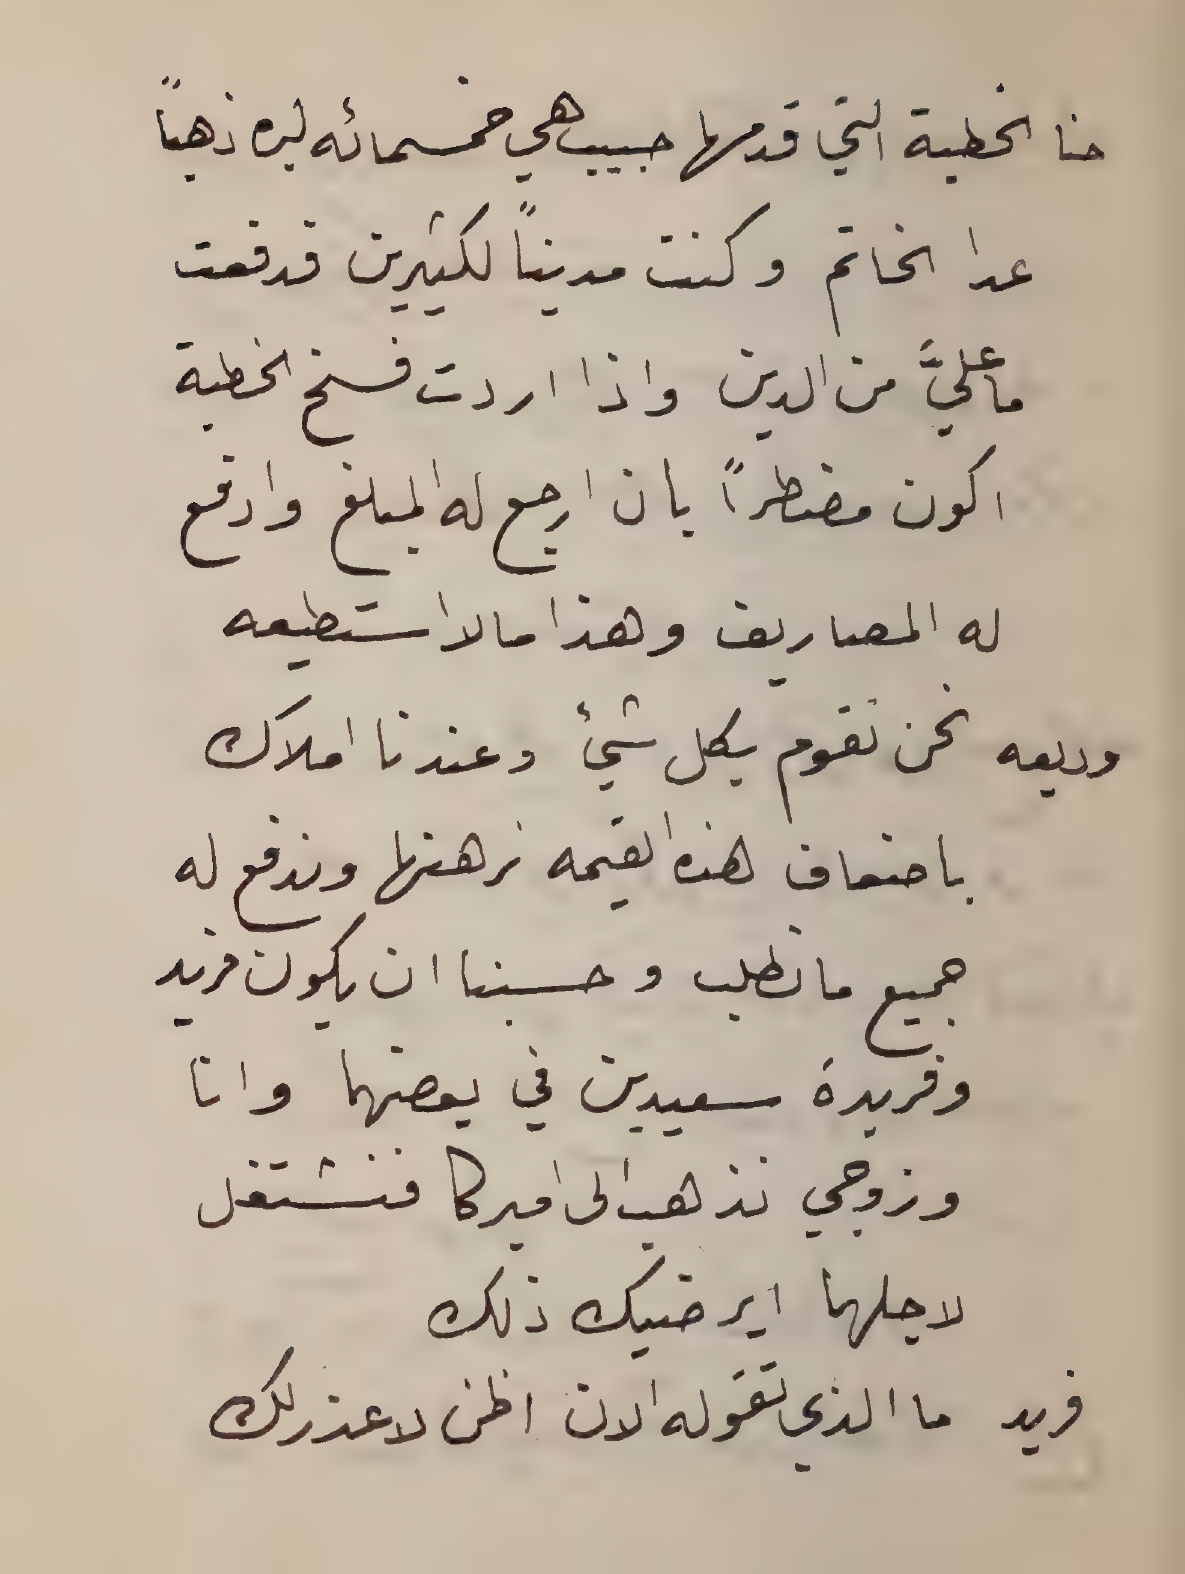 حنا الخطبة التي قدمها حبيب هي خمسمائه ليره ذهباً
عدا الخاتم وكنت مديناً لكثيرين فدفعت
ما عليَّ من الدين واذا اردت فسخ الخطبة
اكون مضطراً بان ارجع له المبلغ وادفع
له المصاريف وهذا ما لا استطيعه
وديعه نحن نقوم بكل شيئ وعندنا املاك
باضعاف هذه القيمه نرهنها وندفع له
جميع ما نطلب وحسبنا ان يكون فريد
وفريدة سعيدين في بعضهما وانا
وزوجي نذهب الى اميركا فنشتغل
لاجلهما ايرضيك ذلك
فريد ما الذي تقوله الان اظن لا عذر لك